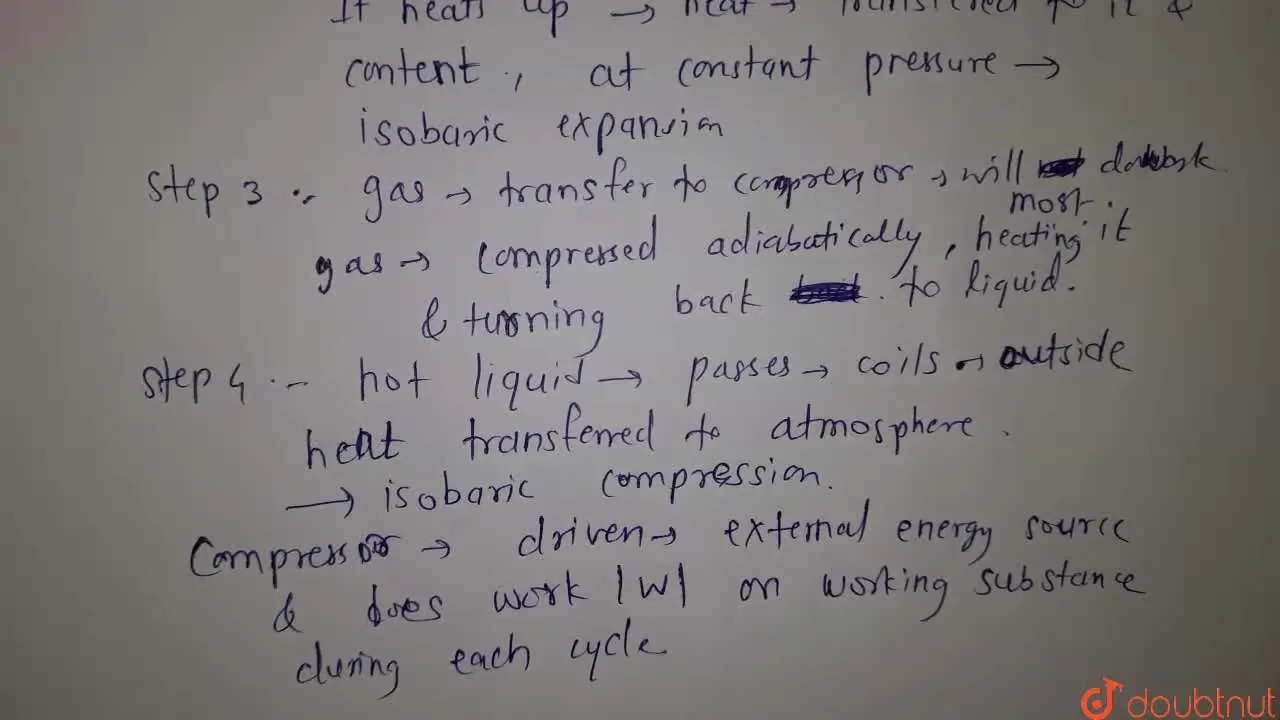 It heats up → heat → transferred to it &
content., at constant pressure →
isobaric expansion
Step 3 :- gas → transfer to compressor → will do work
most.
gas → compressed adiabatically, heating it
& turning back to liquid.
Step 4 :- hot liquid → passes → coils → outside
heat transferred to atmosphere.
→ isobaric compression.
Compressor → driven → external energy source
& does work |W| on working substance
during each cycle
doubtnut